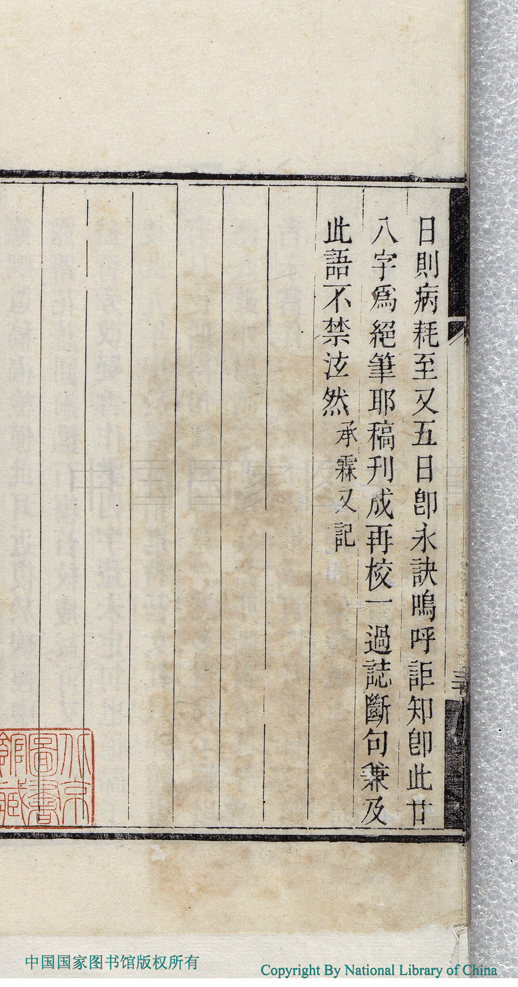 日則病耗至又五日卽永訣嗚呼詎知卽此廿
八字爲絕筆耶稿刊成再校一過誌斷句兼及
此語不禁泫然承霖又記
北京
圖書
館藏
中国国家图书馆版权所有
Copyright By National Library of China